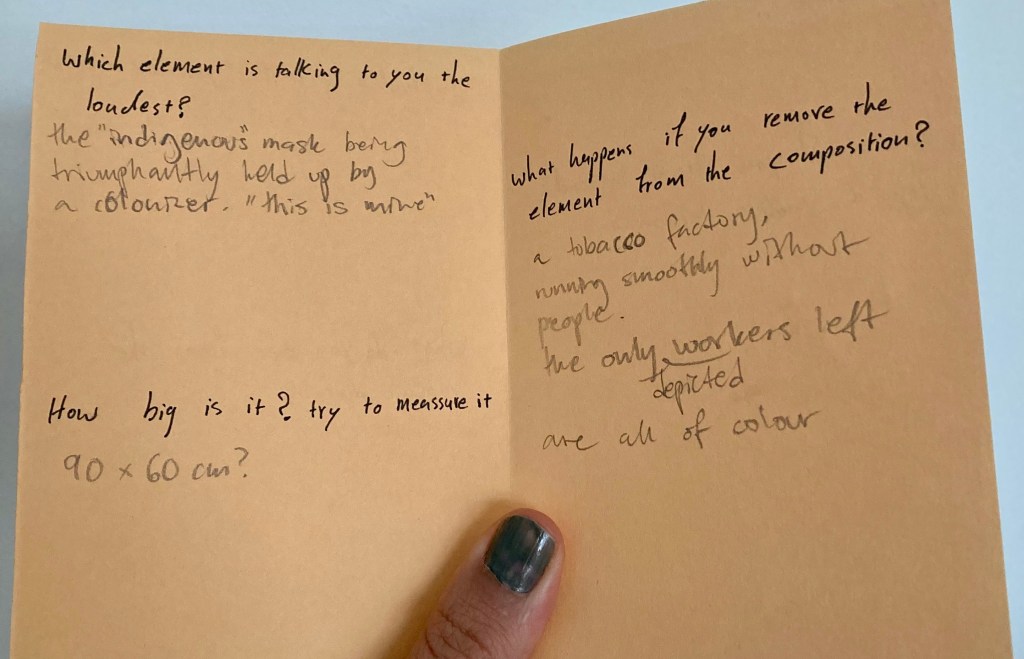 Which element is talking to you the
loudest?
the "indigenous" mask being
triumphantly held up by
a colonizer. "this is mine"
How big is it? try to meassure it
90 x 60 cm?
what happens if you remove the
element from the composition?
a tobacco factory,
running smoothly without
people.
the only workers left
depicted
are all of colour